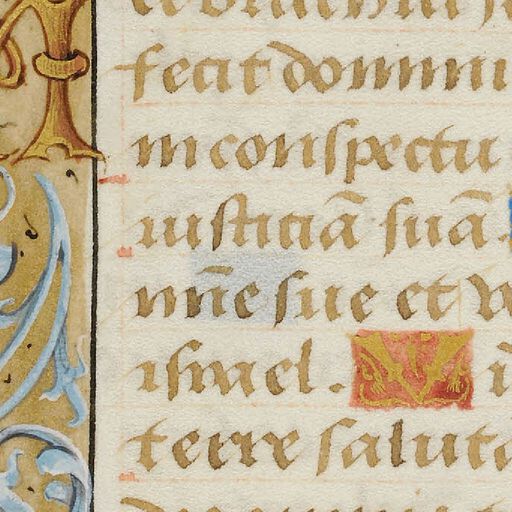 et brachiu
fecit dominu
in conspectu
iusticiā suā.
niē sue et v
israel. V
terre saluta